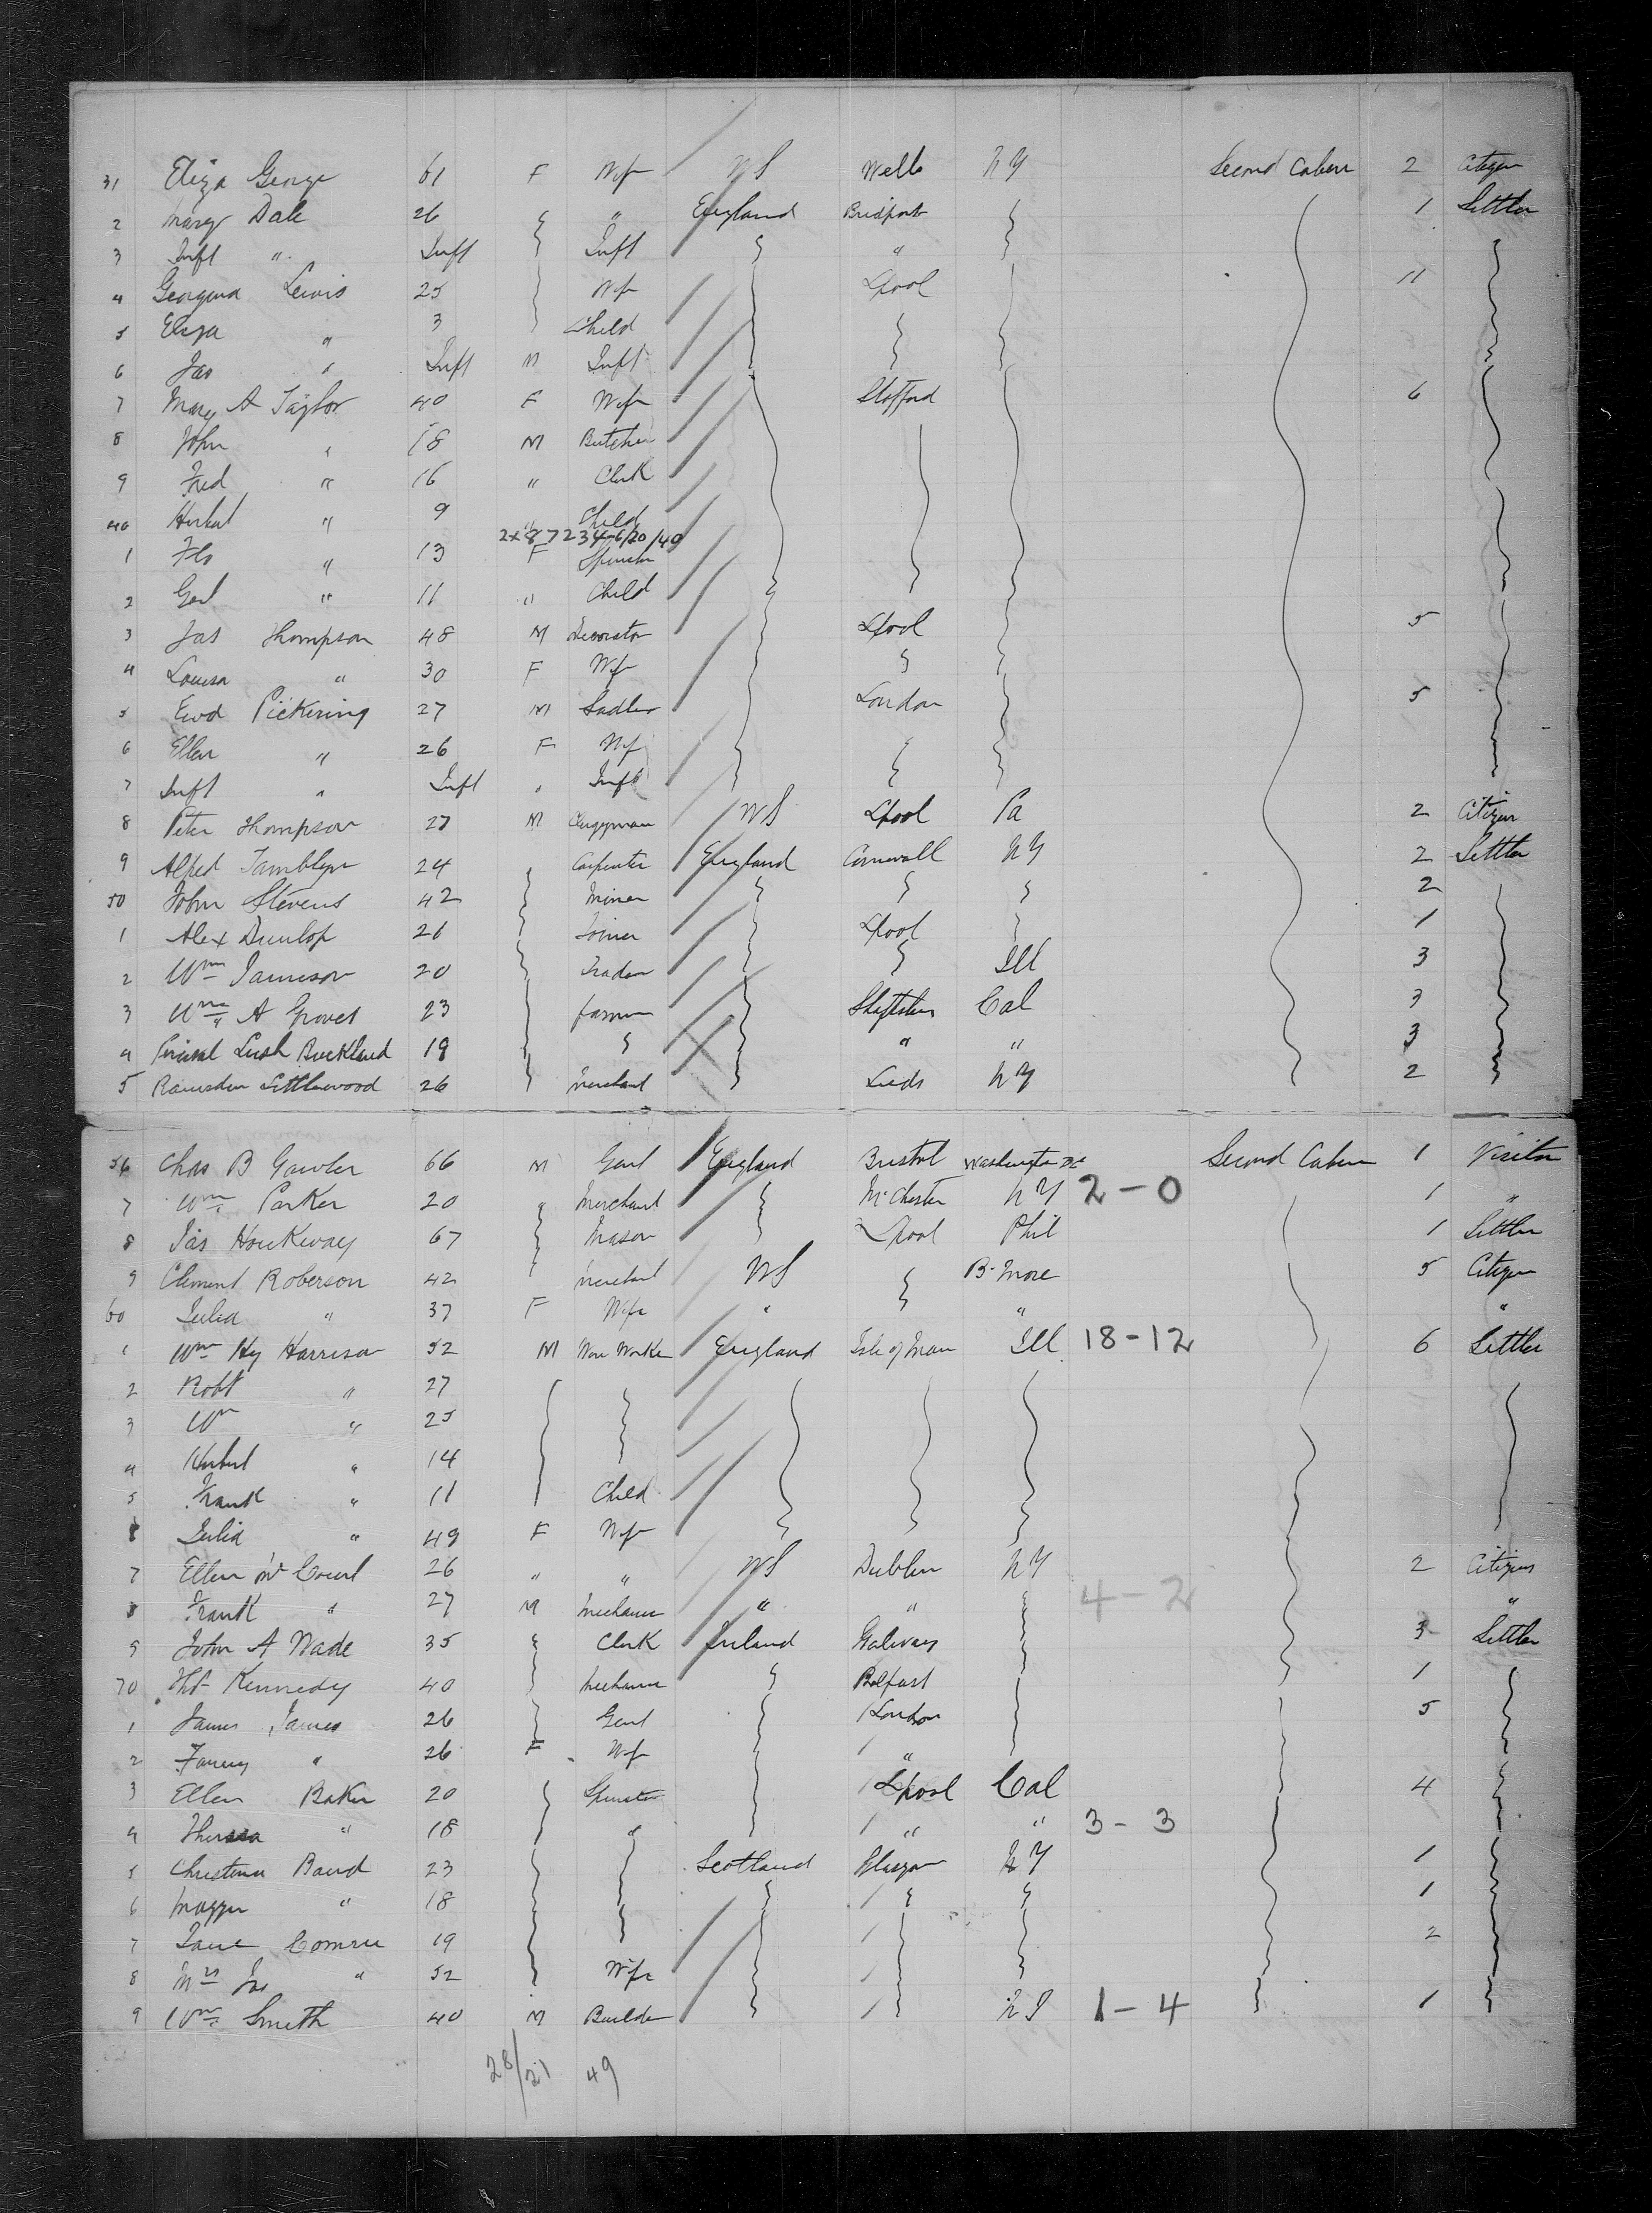 31 Eliza George 61 F Wife US Wells NY Second Cabin 2 Citizen
2 Mary Dale 26 " England Bridport 1 Settler
3 Inft " Inft Inft "
4 Georgina Lewis 25 Wife Lpool 11
5 Eliza " 3 Child
6 Jas " Inft M Inft
7 Mary A Taylor 40 F Wife Stafford 6
8 John " 18 M Butcher
9 Fred " 16 " Clerk
40 Herbert " 9 " Child
2x87234-6/20/40
1 Flo " 13 F Spinster
2 Gert " 11 " Child
3 Jas Thompson 48 M Decorator Lpool 5
4 Louisa " 30 F Wife
5 Ewd Pickering 27 M Sadler London 5
6 Ellen " 26 F Wife
7 Inft " Inft " Inft
8 Peter Thompson 27 M Clergyman US Lpool Pa 2 Citizen
9 Alfred Tamblyn 24 " Carpenter England Cornwall NY 2 Settler
50 John Stevens 42 Miner 2
1 Alex Dunlop 21 Joiner Lpool 1
2 Wm Jameson 20 Trader Ill 3
3 Wm A Groves 23 farmer Cal 3
4 Percival Lush Buckland 19 " " 3
5 Ramsden Littlewood 26 Merchant Leeds NY 2
56 Chas B Gawler 66 M Gent England Bristol Washington DC Second Cabin 1 Visitor
7 Wm Parker 20 " Merchant McChester NY 2-0 1 "
8 Jas Hockway 67 Mason Lpool Phil 1 Settler
9 Clement Roberson 42 Merchant US B-More 5 Citizen
60 Julia " 37 F Wife " " "
1 Wm Hy Harrison 52 M Worker England Isle of Man Ill 18-12 6 Settler
2 Robt " 27
3 Wm " 25
4 Herbert " 14
5 Frank " 11 Child
6 Julia " 49 F Wife
7 Ellen McCourt 26 " " US Dublin NY 2 Citizens
8 Frank " 27 M Mechanic " " 4-2 "
9 John A Wade 35 Clerk Ireland Galway 3 Settler
70 Thos Kennedy 40 Mechanic Belfast 1
1 James James 26 Gent London 5
2 Fanny " 26 F Wife "
3 Ellen Baker 20 Spinster Lpool Cal 4
4 Theresa " 18 " " " 3-3
5 Christina Baird 23 Scotland Glasgow NY 1
6 Maggie " 18 1
7 Jane Comrie 19 2
8 Mrs Jas " 52 Wife
9 Wm Smith 40 M Builder 1-4 1
28/21 49